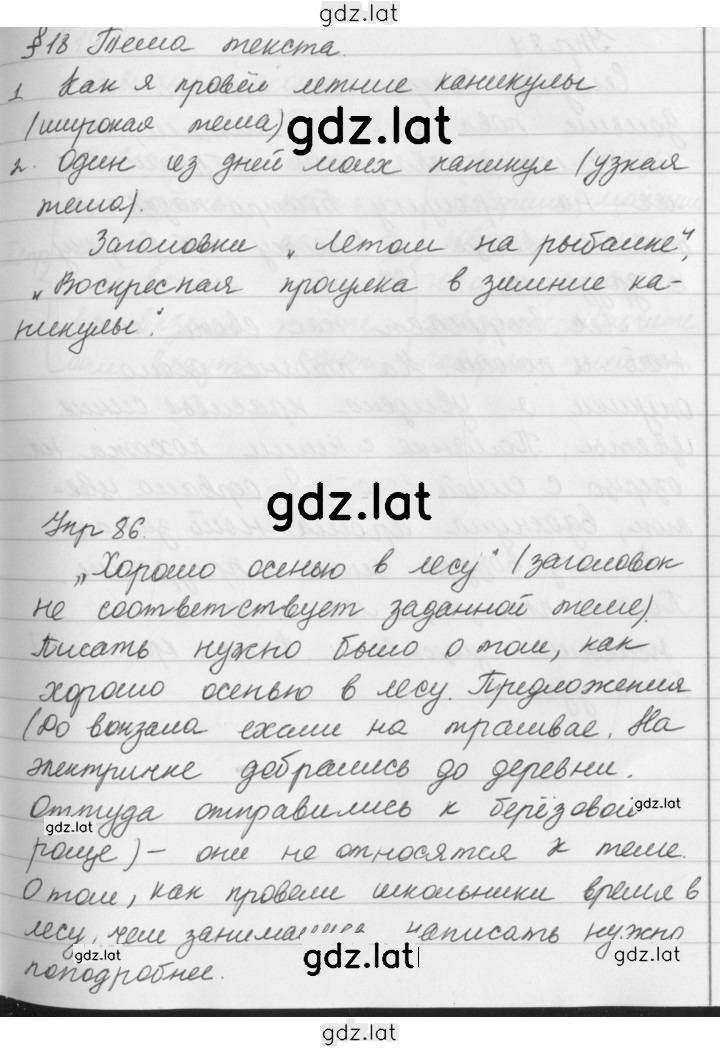 gdz.lat
§18 Тема текста.
1 Как я провёл летние каникулы
(широкая тема)
gdz.lat
2. Один из дней моих каникул (узкая
тема).
Заголовки „Летом на рыбалке",
„Воскресная прогулка в зимние ка-
никулы".
gdz.lat
Упр 86.
„Хорошо осенью в лесу" (заголовок
не соответствует заданной теме).
Писать нужно было о том, как
хорошо осенью в лесу. Предложения
(До вокзала ехали на трамвае. На
электричке добрались до деревни.
Оттуда отправились к берёзовой
gdz.lat
gdz.lat
роще) – они не относятся к теме.
О том, как провели школьники время в
лесу, чем занимались, написать нужно
gdz.lat
gdz.lat
gdz.lat
поподробнее.
gdz.lat